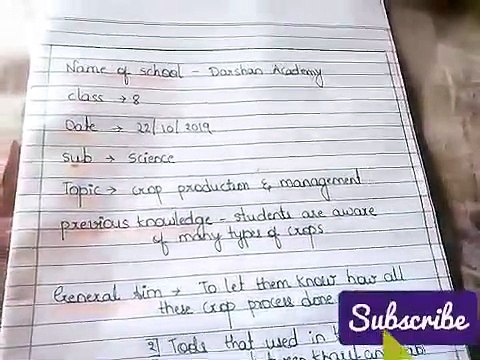 Name of school - Darshan Academy
class → 8
Date → 22/10/2019
Sub → Science
Topic → crop production & management
previous knowledge - students are aware
of many types of crops
General Aim → To let them know how all
these crop process done
Subscribe
2) Tools that used in